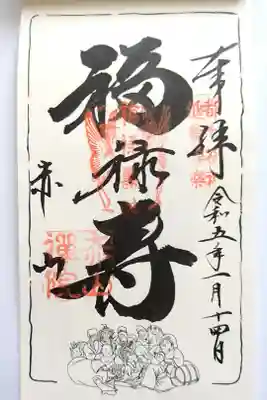 奉拝
令和五年一月十四日
福禄寿
赤山
赤山禅院